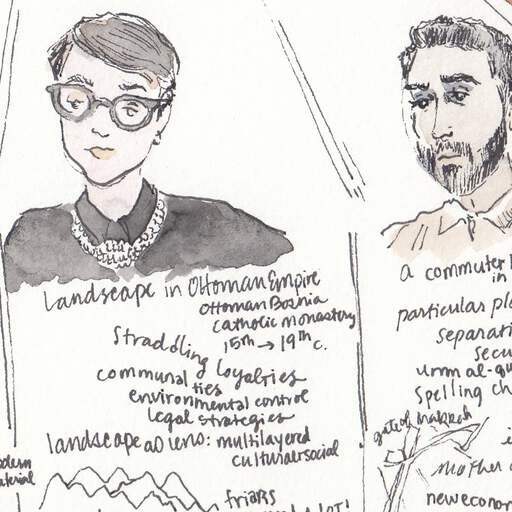 Landscape in Ottoman Empire
Ottoman Bosnia
Catholic monastery
15th → 19th c.
Straddling loyalties
communal ties
environmental control
legal strategies
landscape as lens: multilayered
cultural & social
friars
a commuter
in
particular pl
separati
secu
umm al-qu
Spelling ch
gated Makkah
mother
new econor